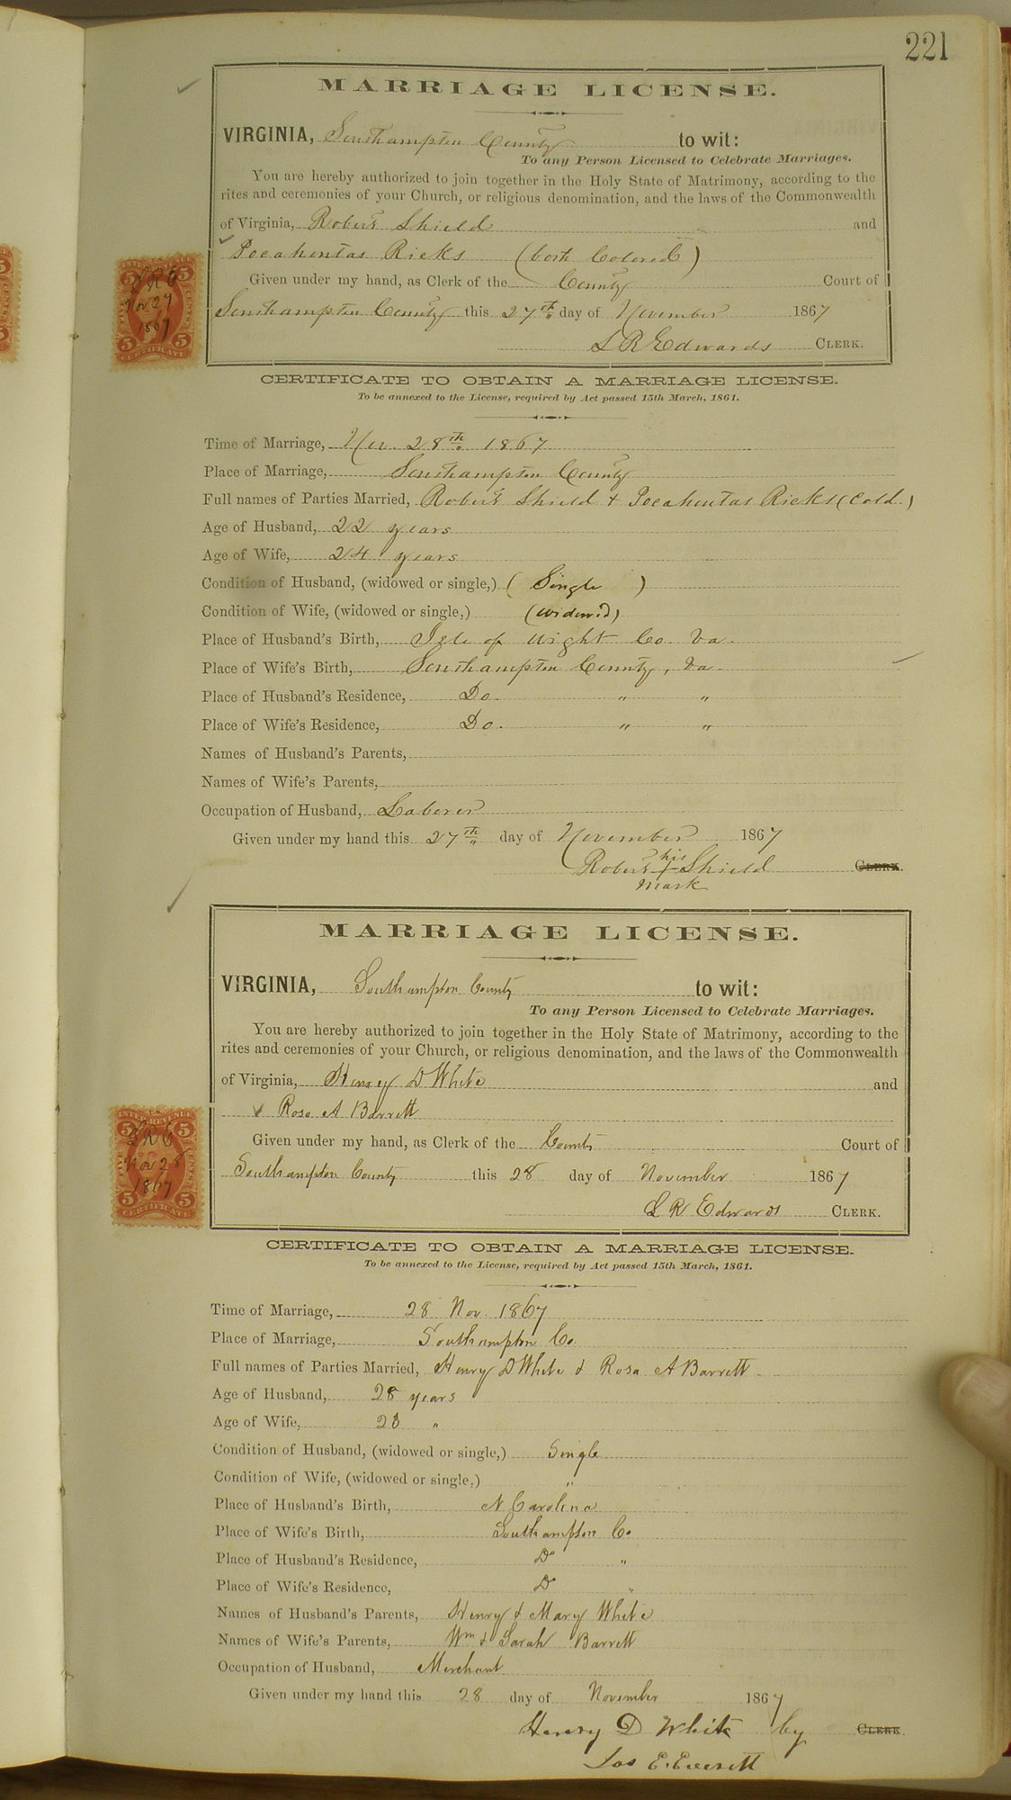 221
MARRIAGE LICENSE.
VIRGINIA, Southampton County to wit:
To any Person Licensed to Celebrate Marriages.
You are hereby authorized to join together in the Holy State of Matrimony, according to the
rites and ceremonies of your Church, or religious denomination, and the laws of the Commonwealth
of Virginia, Robert Shield and
Pocahontas Ricks (both Colored)
Given under my hand, as Clerk of the County Court of
Southampton County this 27th day of November 1867
L R Edwards CLERK.
5 5
LRE
Nov 27
1867
5 5
CERTIFICATE
CERTIFICATE TO OBTAIN A MARRIAGE LICENSE.
To be annexed to the License, required by Act passed 15th March, 1861.
Time of Marriage, Nov. 28th 1867
Place of Marriage, Southampton County
Full names of Parties Married, Robert Shield & Pocahontas Ricks (Cold.)
Age of Husband, 22 years
Age of Wife, 24 years
Condition of Husband, (widowed or single,) ( Single )
Condition of Wife, (widowed or single,) (widowed)
Place of Husband's Birth, Isle of Wight Co. Va.
Place of Wife's Birth, Southampton County, Va.
Place of Husband's Residence, Do. " "
Place of Wife's Residence, Do. " "
Names of Husband's Parents,
Names of Wife's Parents,
Occupation of Husband, Laborer
Given under my hand this 27th day of November 1867
his
Robert + Shield CLERK.
mark
MARRIAGE LICENSE.
VIRGINIA, Southampton County to wit:
To any Person Licensed to Celebrate Marriages.
You are hereby authorized to join together in the Holy State of Matrimony, according to the
rites and ceremonies of your Church, or religious denomination, and the laws of the Commonwealth
of Virginia, Henry D White and
Rosa A Barrett
Given under my hand, as Clerk of the County Court of
Southampton County this 28 day of November 1867
L R Edwards CLERK.
INTER. REVENUE
5 5
LRE
Nov 28
1867
5 5
CERTIFICATE
CERTIFICATE TO OBTAIN A MARRIAGE LICENSE.
To be annexed to the License, required by Act passed 15th March, 1861.
Time of Marriage, 28 Nov. 1867
Place of Marriage, Southampton Co.
Full names of Parties Married, Henry D White & Rosa A Barrett
Age of Husband, 28 years
Age of Wife, 23 "
Condition of Husband, (widowed or single,) Single
Condition of Wife, (widowed or single,) "
Place of Husband's Birth, N Carolina
Place of Wife's Birth, Southampton Co.
Place of Husband's Residence, Do "
Place of Wife's Residence, Do "
Names of Husband's Parents, Henry & Mary White
Names of Wife's Parents, Wm & Sarah Barrett
Occupation of Husband, Merchant
Given under my hand this 28 day of November 1867
Henry D White by CLERK.
Jos E. Everett